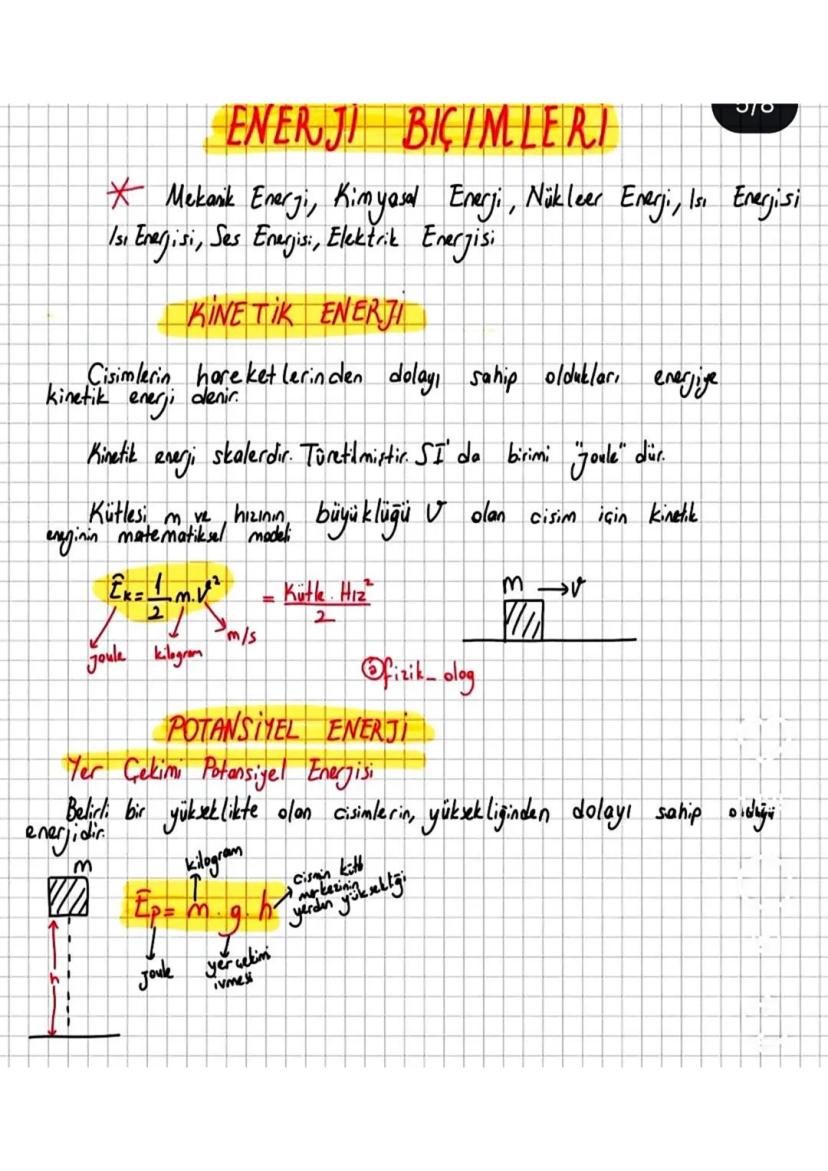 ENERJİ BİÇİMLERİ
5/8
* Mekanik Enerji, Kimyasal Enerji, Nükleer Enerji, Isı Enerjisi
Isı Enerjisi, Ses Enerjisi, Elektrik Enerjisi
KİNETİK ENERJİ
Cisimlerin hareketlerinden dolayı sahip oldukları enerjiye
kinetik enerji denir.
Kinetik enerji skalerdir. Türetilmiştir. SI'da birimi "joule" dür.
Kütlesi m ve hızının büyüklüğü v olan cisim için kinetik
enerjinin matematiksel modeli
Ek = 1/2 m.v² = Kütle . Hız² / 2
joule kilogram m/s
m → v
@fizik_olog
POTANSİYEL ENERJİ
Yer Çekimi Potansiyel Enerjisi
Belirli bir yükseklikte olan cisimlerin, yüksekliğinden dolayı sahip olduğu
enerjidir.
m
h
kilogram
Ep = m . g . h
cismin kütle
merkezinin
yerden yüksekliği
joule
yer çekimi
ivmesi